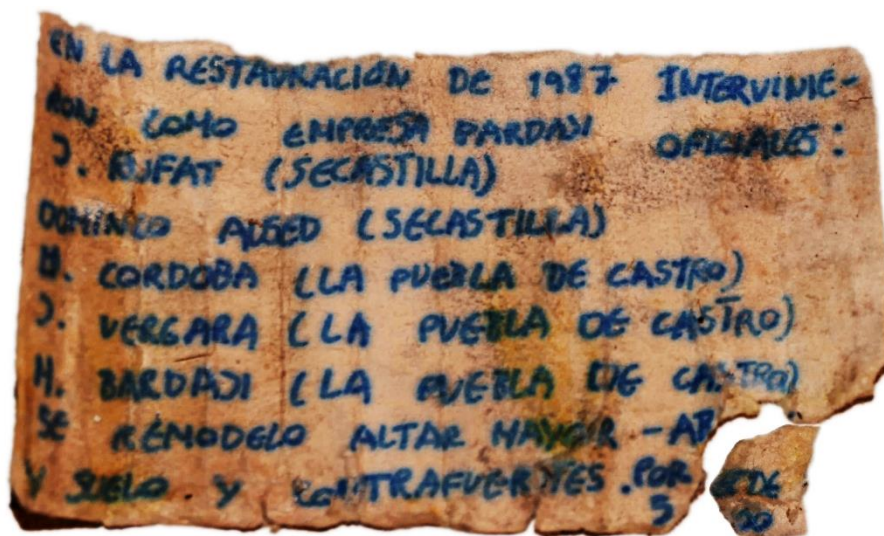 EN LA RESTAURACIÓN DE 1987 INTERVINIE-
RON COMO EMPRESA BARDAJI OFICIALES:
J. RUFAT (SECASTILLA)
DOMINGO ALGED (SECASTILLA)
CORDOBA (LA PUEBLA DE CASTRO)
J. VERGARA (LA PUEBLA DE CASTRO)
M. BARDAJI (LA PUEBLA DE CASTRO)
SE REMODELO ALTAR MAYOR - AB
Y SUELO Y CONTRAFUERTES. POR
5